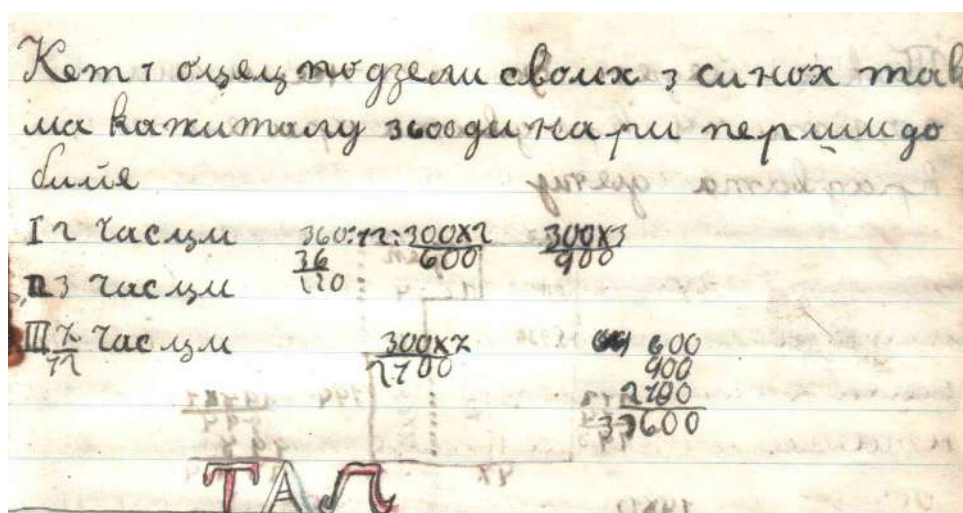 Кет 1 оцец подзели своих 3 синох так
ма капиталу 3600 динари перши до
биє
I 2 часци 360:12:300х2 300х3
36 600 900
120
II 3 часци
III 7 часци 300х7 600
12 2100 900
2100
3600
ТАЛ